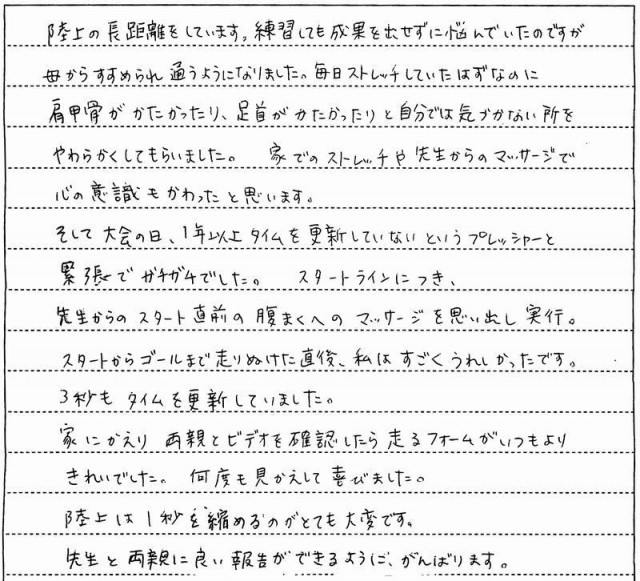 陸上の長距離をしています。練習しても成果を出せずに悩んでいたのですが
母からすすめられ通うようになりました。毎日ストレッチしていたはずなのに
肩甲骨がかたかったり、足首がかたかったりと自分では気づかない所を
やわらかくしてもらいました。 家でのストレッチや先生からのマッサージで
心の意識もかわったと思います。
そして大会の日、1年以上タイムを更新していないというプレッシャーと
緊張でガチガチでした。 スタートラインにつき、
先生からのスタート直前の腹まくへのマッサージを思い出し実行。
スタートからゴールまで走りぬけた直後、私はすごくうれしかったです。
3秒もタイムを更新していました。
家にかえり両親とビデオを確認したら走るフォームがいつもより
きれいでした。何度も見かえして喜びました。
陸上は1秒を縮めるのがとても大変です。
先生と両親に良い報告ができるように、がんばります。